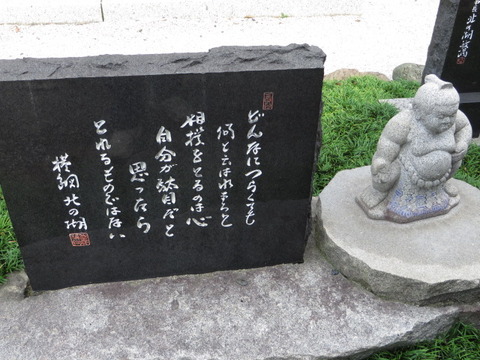 どんなにつらくとも
何と云はれようと
相撲をとるのは心
自分が駄目だと
思ったら
とれるものではない
横綱 北の湖